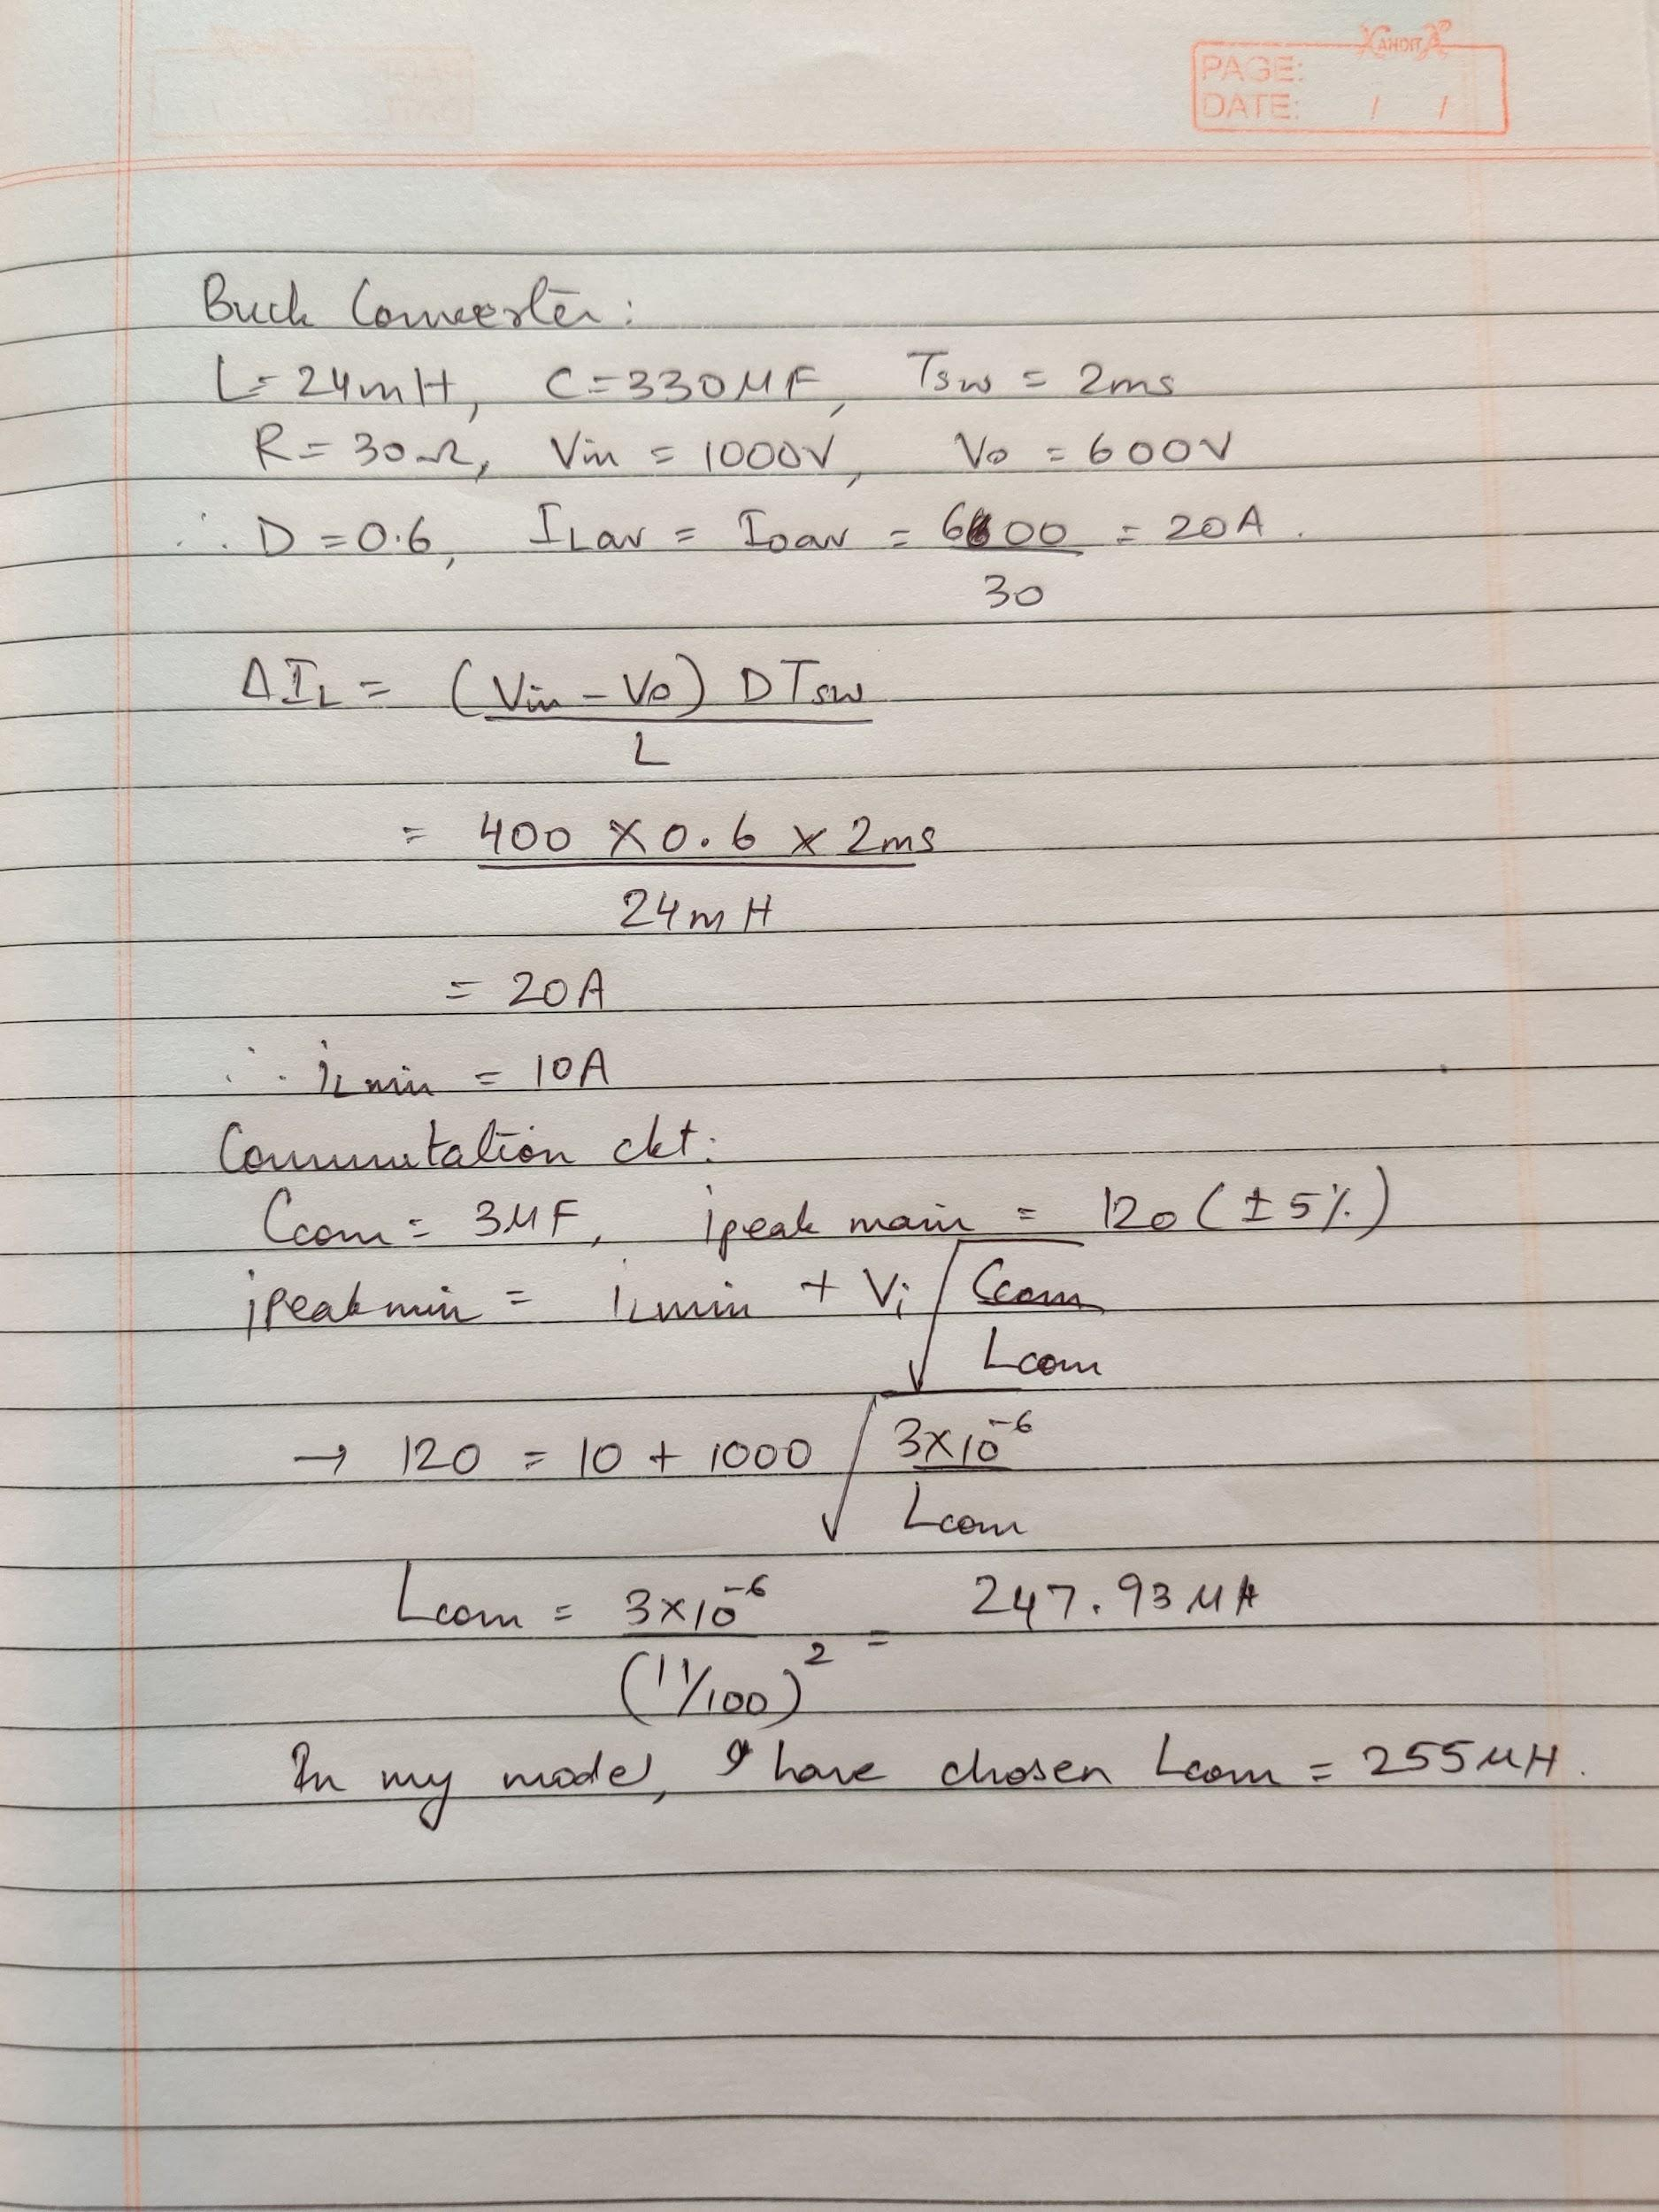 KANDITA
PAGE:
DATE: / /
Buck Converter:
L = 24mH, C = 330μF, Tsw = 2ms
R = 30Ω, Vin = 1000V, Vo = 600V
∴ D = 0.6, ILav = Ioav = 600/30 = 20A.
ΔIL = (Vin - Vo) DTsw / L
= 400 × 0.6 × 2ms / 24mH
= 20A
∴ iLmin = 10A
Commutation ckt:
Ccom = 3μF, ipeak main = 120 (±5%)
ipeakmin = iLmin + Vi √(Ccom / Lcom)
→ 120 = 10 + 1000 √(3×10⁻⁶ / Lcom)
Lcom = 3×10⁻⁶ / (11/100)² = 247.93μH
In my model, I have chosen Lcom = 255μH.